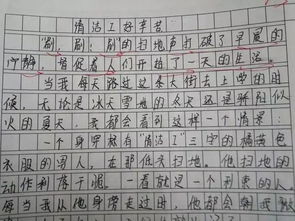 清洁工好辛苦
"刷,刷!刷的扫地声打破了早晨的
宁静,督促着人们开始了一天的生活。
当我每天路过这条大街去上学的时
候,无论是冰天雪地的冬天还是骄阳似
火的夏天,我都会看到这样一个情景:
一个身穿标有"清洁工"三字的橘黄色
衣服的男人,在那低头扫地。他扫地的
动作利落干脆。一看就是一个利索的人。
每当我从他身旁走过时,他都会朝我